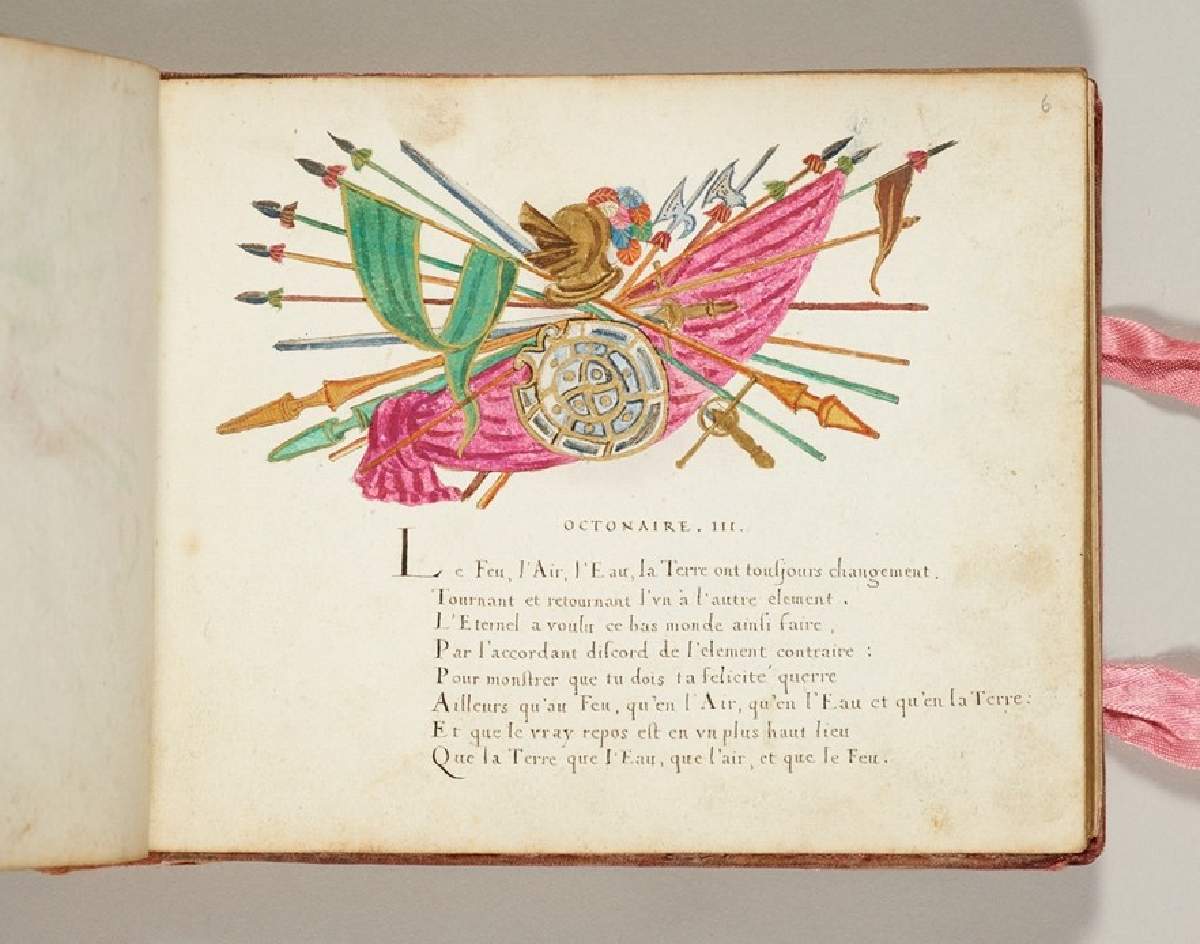 6
OCTONAIRE. III.
Le Feu, l'Air, l'Eau, la Terre ont touſjours changement.
Tournant et retournant l'vn à l'autre element.
L'Eternel a voulu ce bas monde ainſi faire,
Par l'accordant diſcord de l'element contraire:
Pour monſtrer que tu dois ta felicité querre
Ailleurs qu'au Feu, qu'en l'Air, qu'en l'Eau et qu'en la Terre:
Et que le vray repos eſt en vn plus haut lieu
Que la Terre que l'Eau, que l'air, et que le Feu.